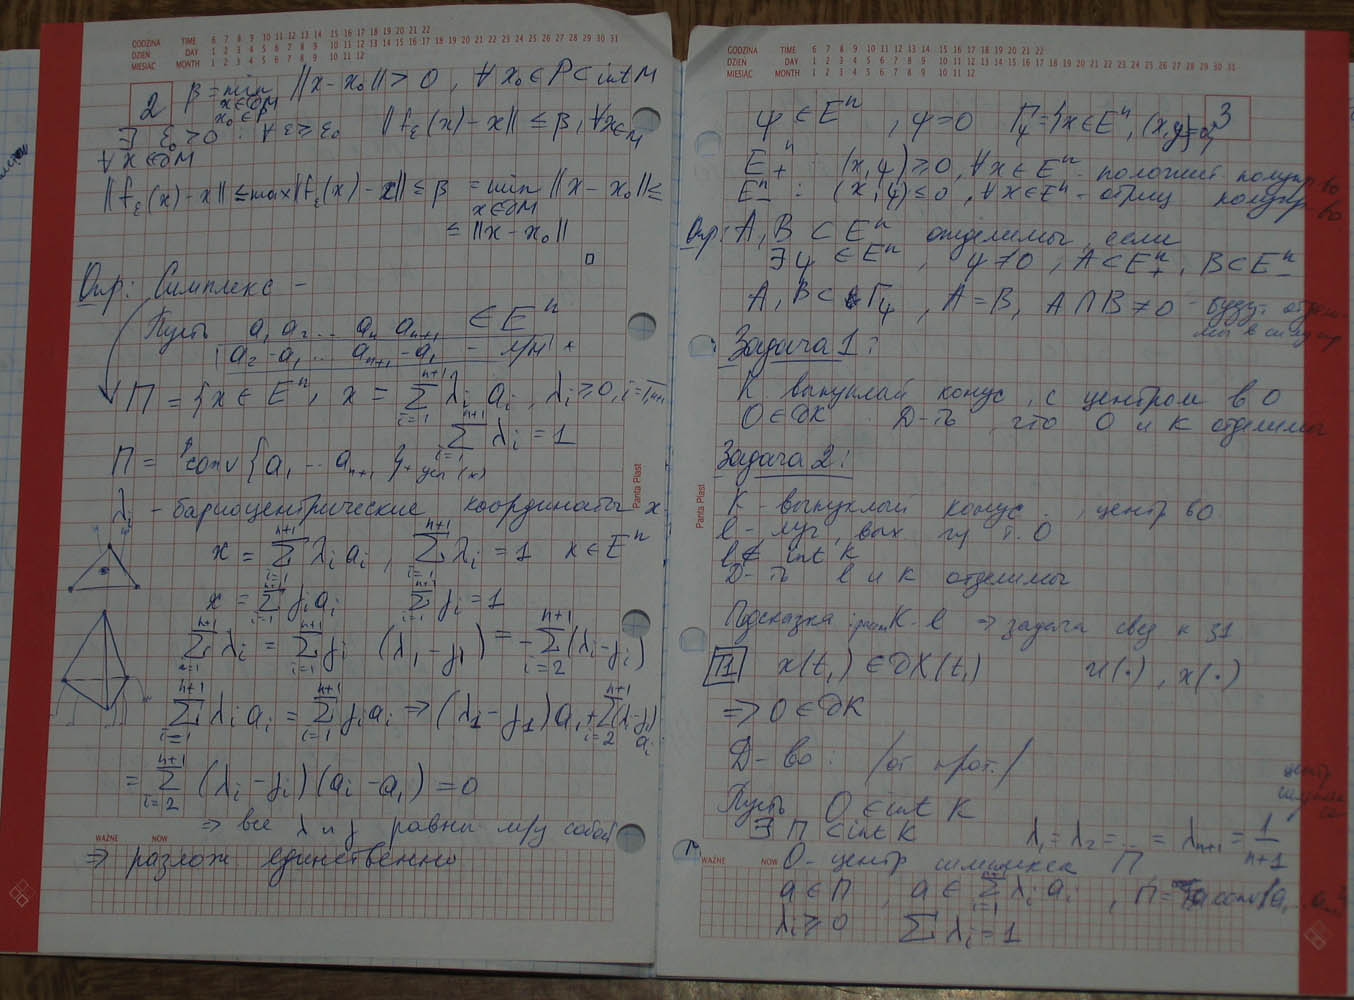 GODZINA TIME 6 7 8 9 10 11 12 13 14 15 16 17 18 19 20 21 22
DZIEŃ DAY 1 2 3 4 5 6 7 8 9 10 11 12 13 14 15 16 17 18 19 20 21 22 23 24 25 26 27 28 29 30 31
MIESIĄC MONTH 1 2 3 4 5 6 7 8 9 10 11 12
2
β = min ||x - x₀|| > 0, ∀ x₀ ∈ P ⊂ int M
x∈∂M
x₀∈P
∃ ε₀ > 0 : ∀ ε ≥ ε₀ ||f_ε(x) - x|| ≤ β, ∀x∈M
∀ x ∈ ∂M
||f_ε(x) - x|| ≤ max||f_ε(x) - x|| ≤ β = min ||x - x₀|| ≤
x∈∂M
≤ ||x - x₀||
□
Опр: Симплекс -
Пусть a₁ a₂ ... aₙ aₙ₊₁ ∈ Eⁿ
a₂ - a₁ ... aₙ₊₁ - a₁ - л/н
П = {x ∈ Eⁿ, x = Σ_{i=1}^{n+1} λᵢ aᵢ, λᵢ ≥ 0, i = 1,n+1
Σ_{i=1}^{n+1} λᵢ = 1
П = conv {a₁ ... aₙ₊₁} + усл (*)
λᵢ - бариоцентрические координаты x
x = Σ_{i=1}^{n+1} λᵢ aᵢ, Σ_{i=1}^{n+1} λᵢ = 1 x ∈ Eⁿ
x = Σ_{i=1}^{n+1} γᵢ aᵢ Σ_{i=1}^{n+1} γᵢ = 1
Σ_{i=1}^{n+1} λᵢ = Σ_{i=1}^{n+1} γᵢ (λ₁ - γ₁) = - Σ_{i=2}^{n+1} (λᵢ - γᵢ)
Σ_{i=1}^{n+1} λᵢ aᵢ = Σ_{i=1}^{n+1} γᵢ aᵢ ⇒ (λ₁ - γ₁) a₁ + Σ_{i=2}^{n+1} (λᵢ - γᵢ) aᵢ
= Σ_{i=2}^{n+1} (λᵢ - γᵢ)(aᵢ - a₁) = 0
⇒ все λ и γ равны м/у собой
WAŻNE NOW
⇒ разлож единственно
Panta Plast
GODZINA TIME 6 7 8 9 10 11 12 13 14 15 16 17 18 19 20 21 22
DZIEŃ DAY 1 2 3 4 5 6 7 8 9 10 11 12 13 14 15 16 17 18 19 20 21 22 23 24 25 26 27 28 29 30 31
MIESIĄC MONTH 1 2 3 4 5 6 7 8 9 10 11 12
3
ψ ∈ Eⁿ, ψ=0 Γ_ψ = {x ∈ Eⁿ, (x,ψ)=0}
E₊ⁿ : (x,ψ) ≥ 0, ∀x ∈ Eⁿ - положит полупр-во
E₋ⁿ : (x,ψ) ≤ 0, ∀x ∈ Eⁿ - отриц полупр-во
Опр: A, B ⊂ Eⁿ отделимы, если
∃ ψ ∈ Eⁿ, ψ ≠ 0, A ⊂ E₊ⁿ, B ⊂ E₋ⁿ
A, B ⊂ Γ_ψ, A = B, A ∩ B ≠ 0 - будут
Задача 1:
K выпуклый конус, с центром в 0
0 ∈ ∂K Д-ть, что 0 и K отделимы
Задача 2:
K - выпуклый конус, центр в 0
l - луч, вых из т. 0
l ⊄ int K
Д-ть l и K отделимы
Подсказка: K - l ⇒ задача свед к з1
Л1 x(t₁) ∈ ∂X(t₁) u(·), x(·)
⇒ 0 ∈ ∂K
Д-во: /от прот./
Пусть 0 ∈ int K
∃ П ⊂ int K λ₁ = λ₂ = ... = λₙ₊₁ = 1/(n+1)
WAŻNE NOW
0 - центр симплекса П
a ∈ П, a ∈ Σ_{i=1}^{n+1} λᵢ aᵢ, П = conv{a₁ ... aₙ₊₁}
λᵢ ≥ 0 Σ λᵢ = 1
Panta Plast